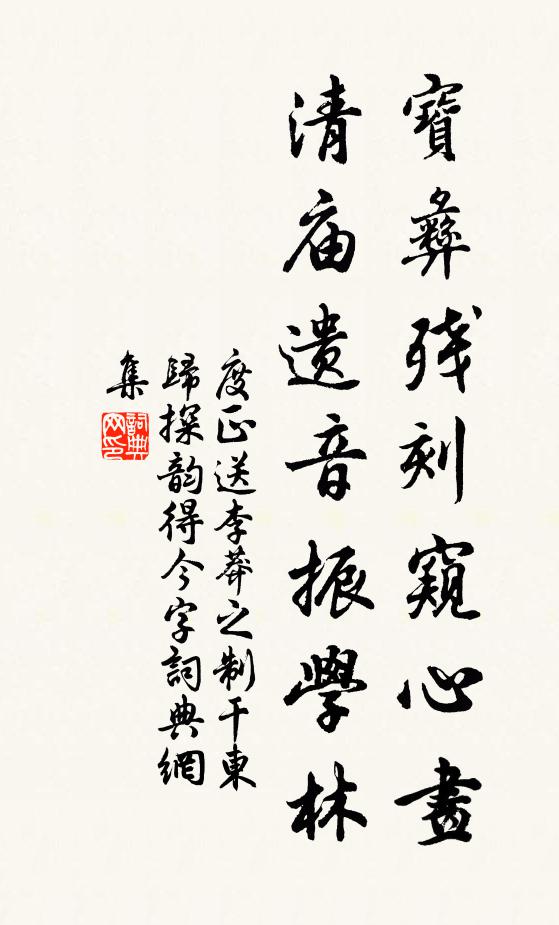 寶彝残刻窺心畫
清庙遗音振學林
度正送李莽之制干東
歸探韵得今字詞典網
集
詞典
网印